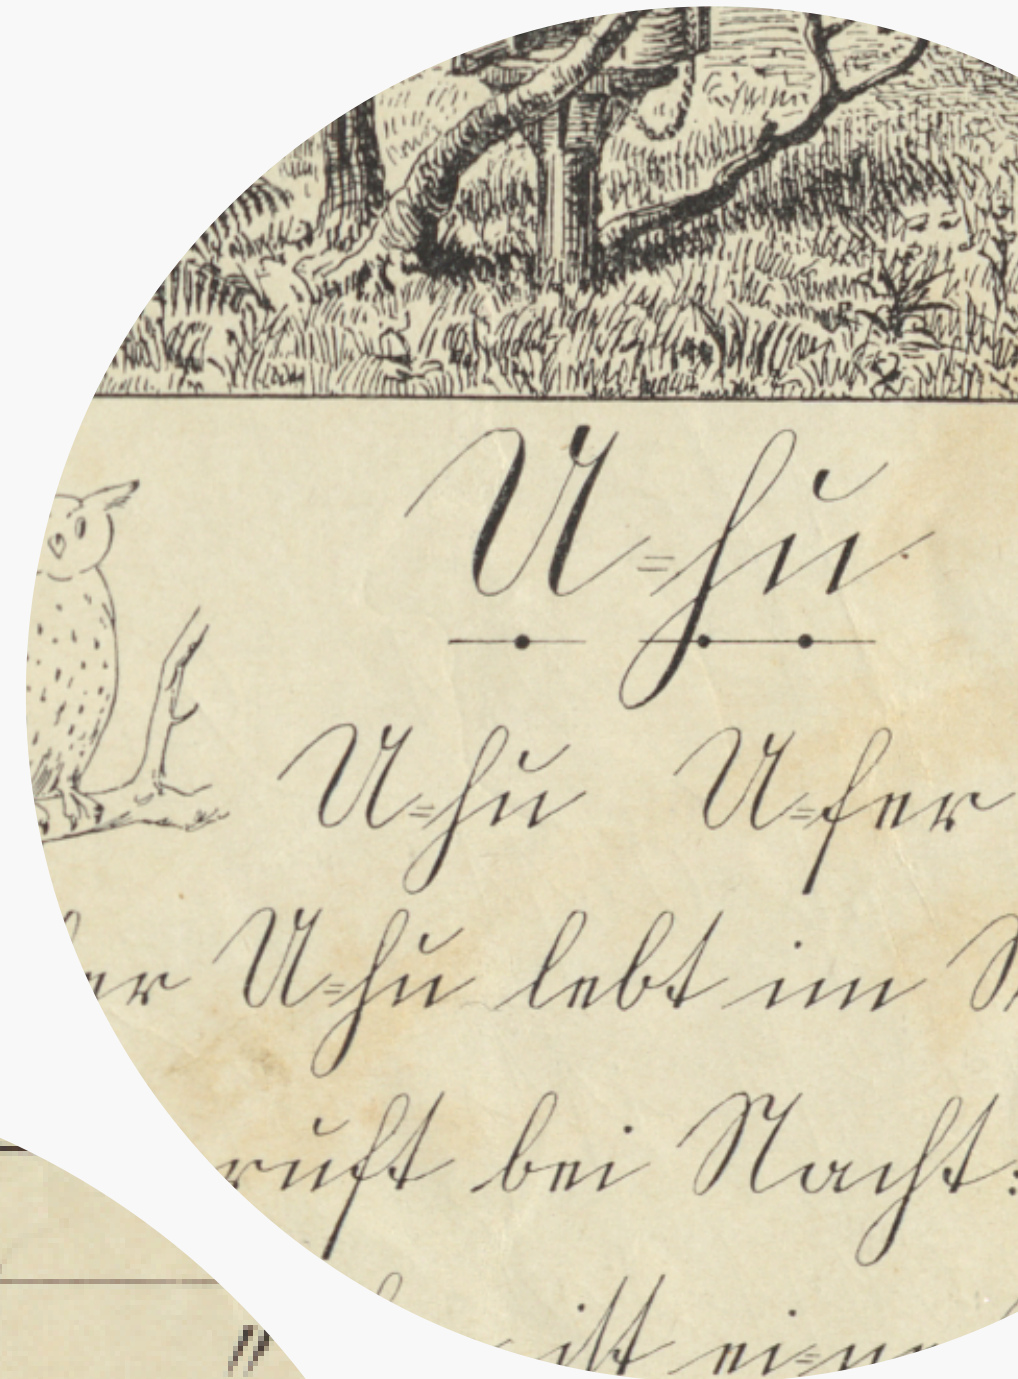 U=hu
U=hu U=fer
er U=hu lebt im
ruft bei Nacht:
ist ei=ne